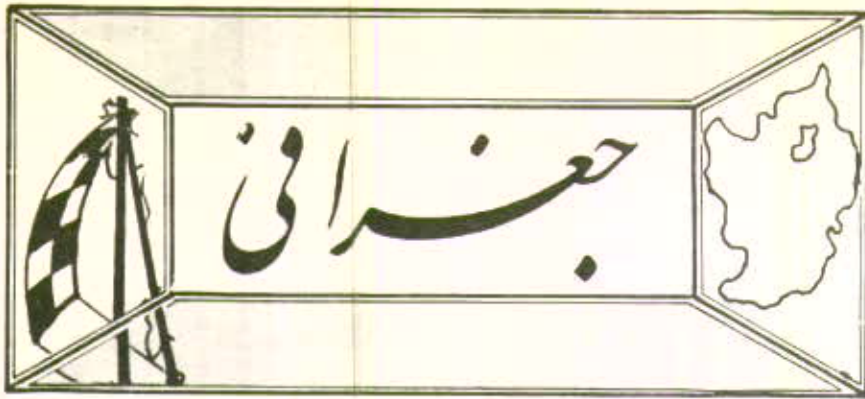 جغرافی